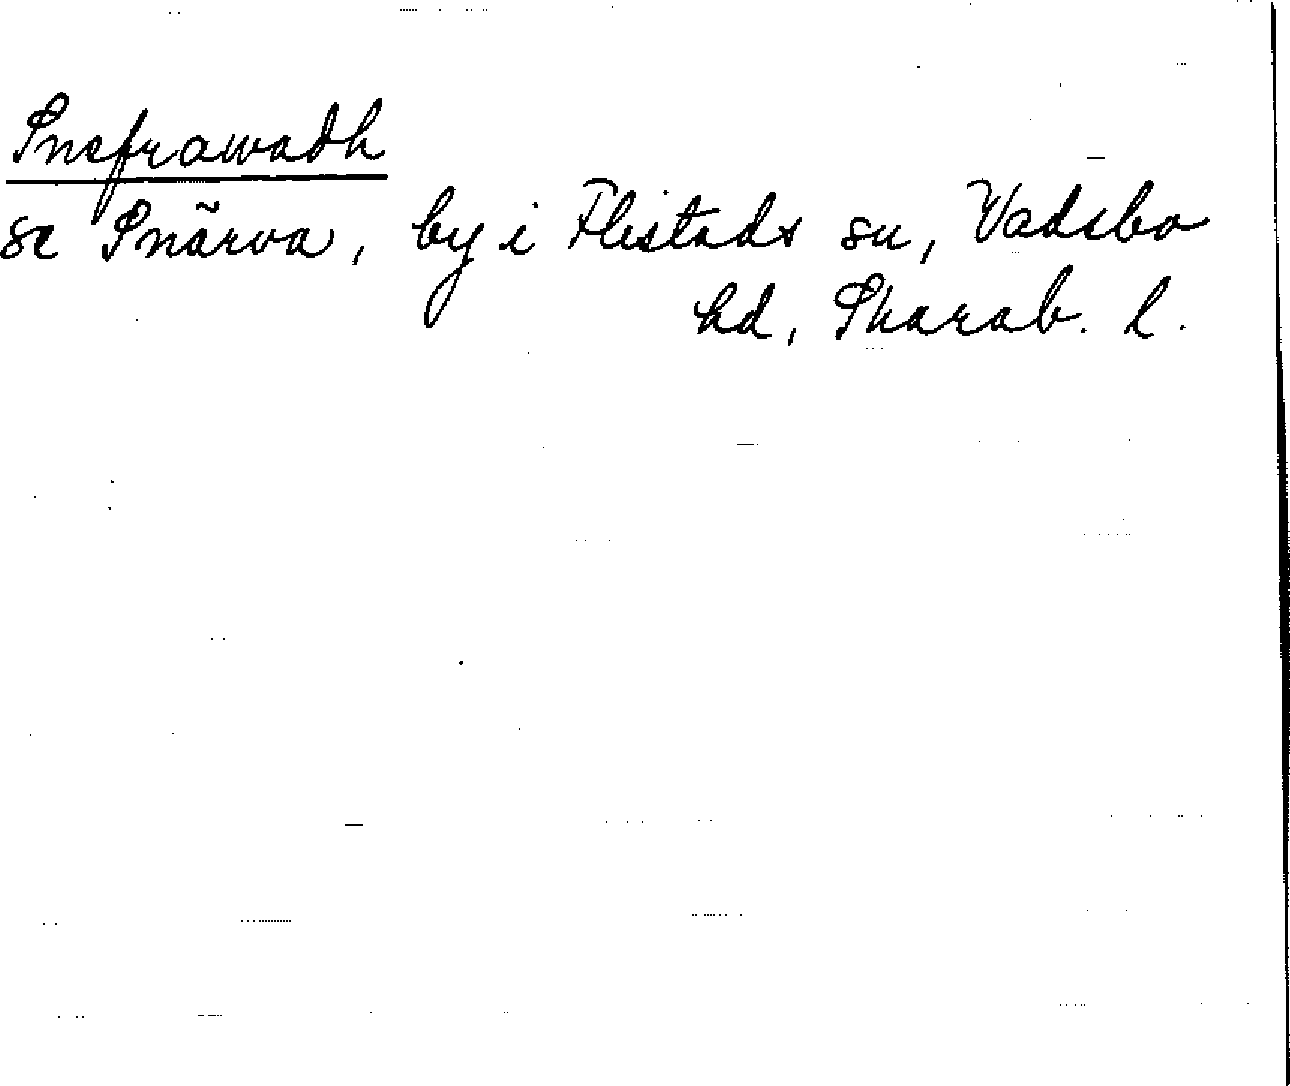 Snefrawadh
se Snärva, by i Flistads sn, Vadsbo
hd, Skarab. l.